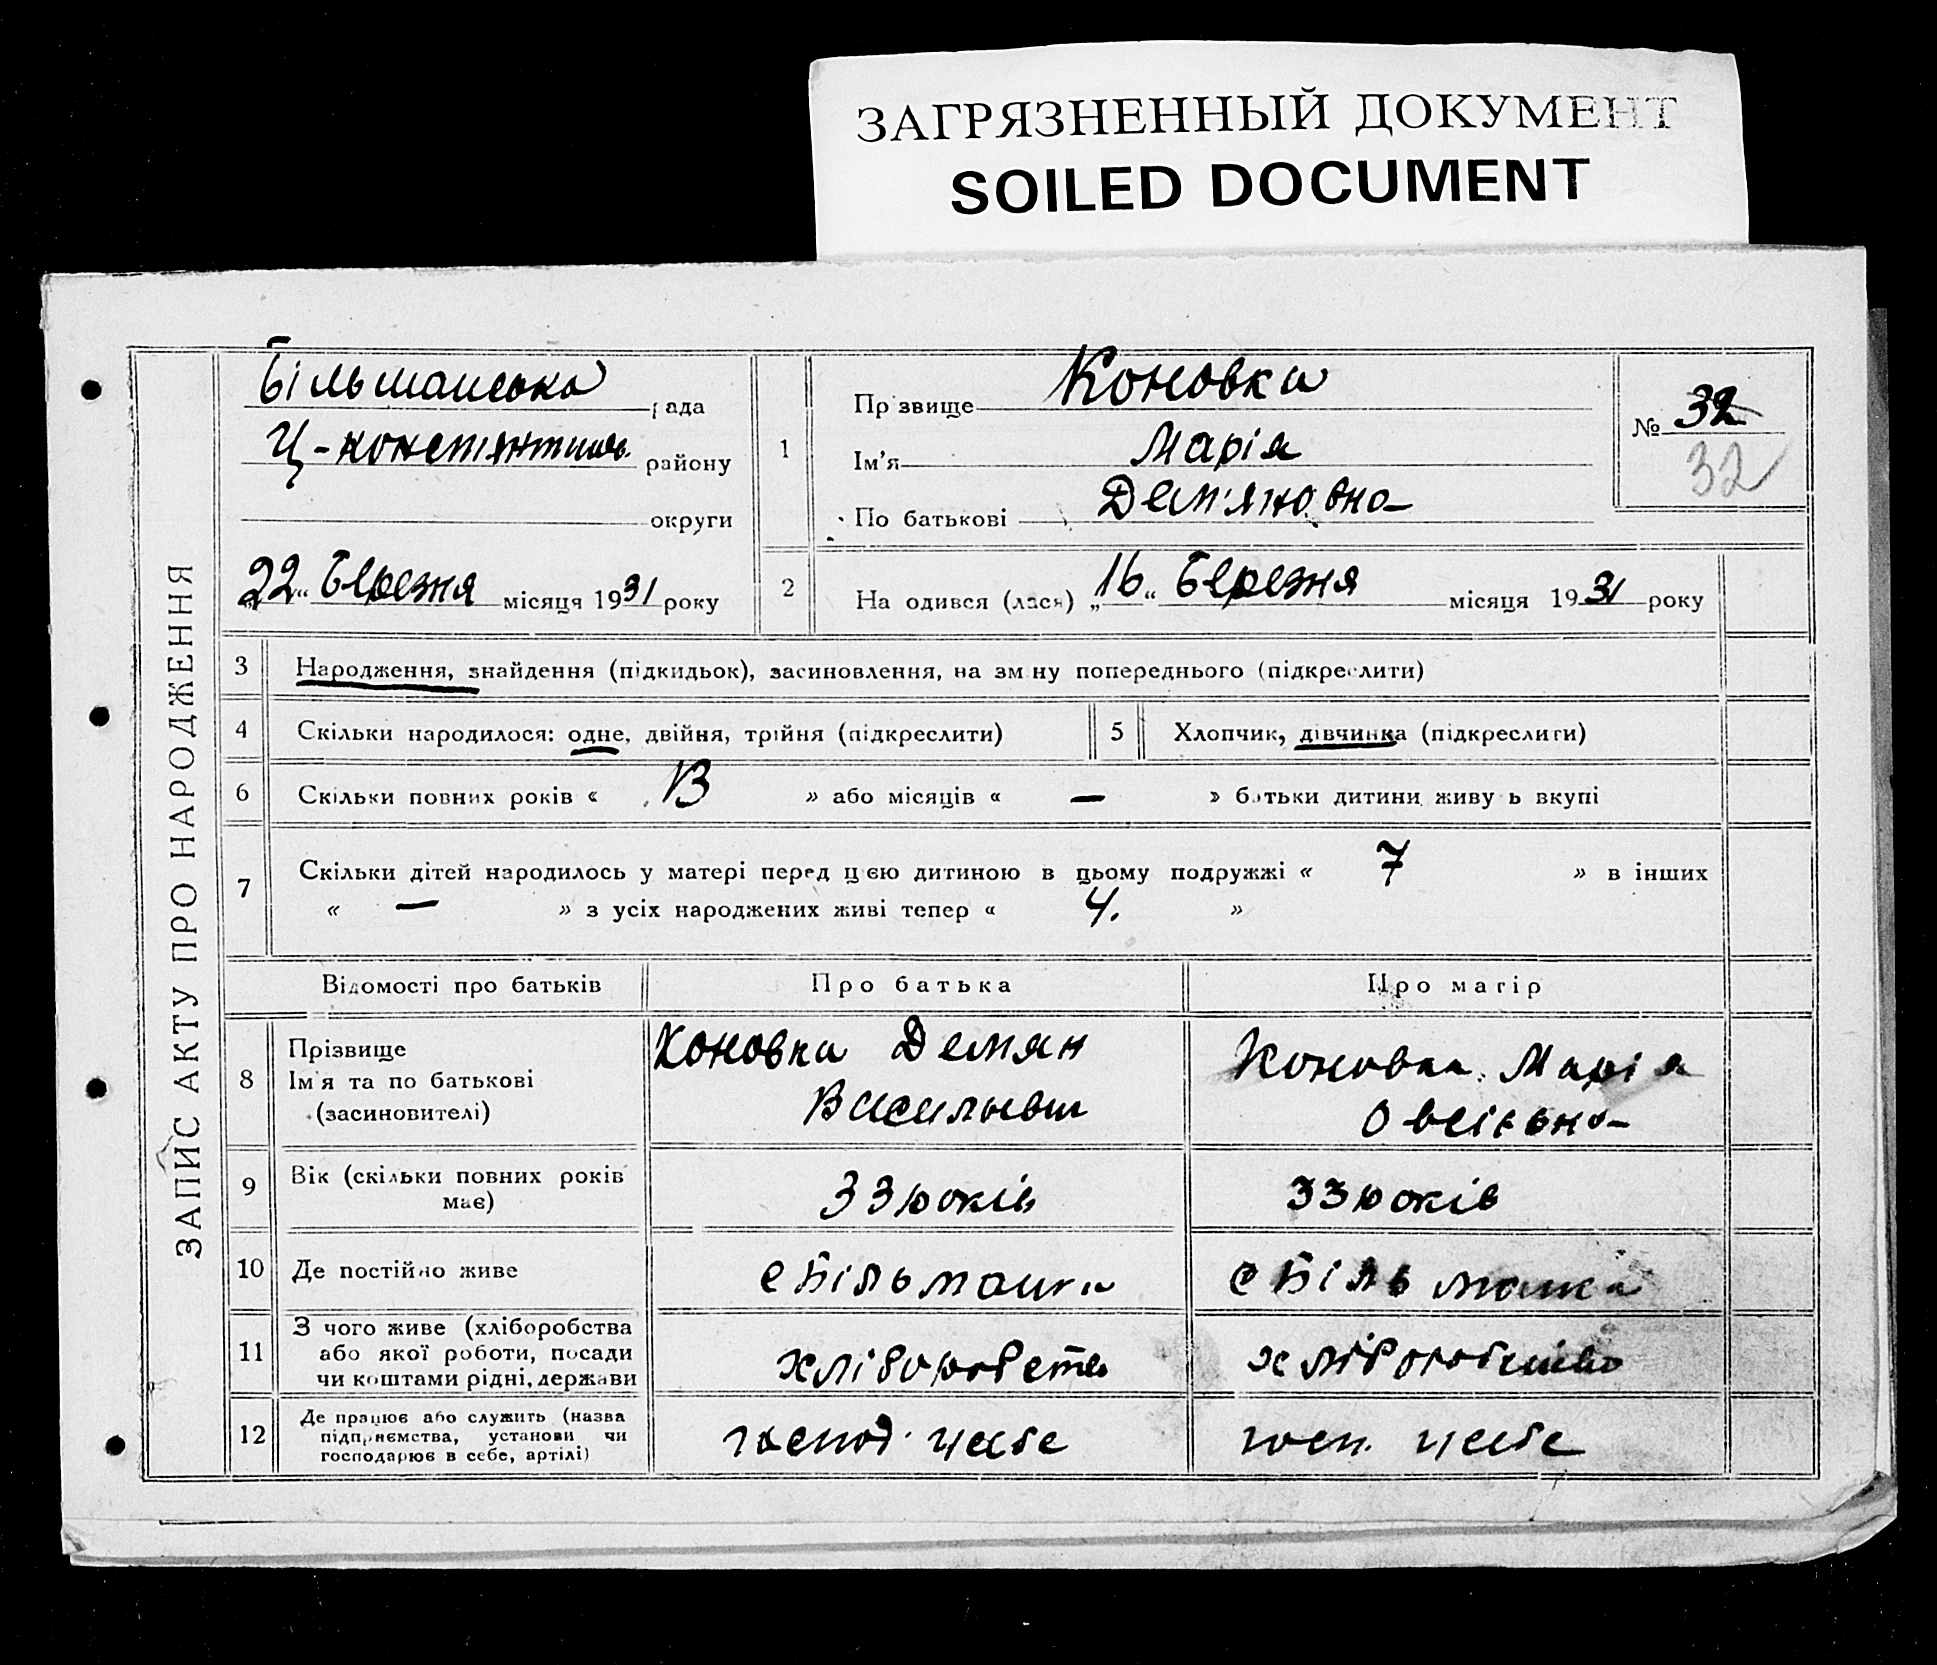 ЗАГРЯЗНЕННЫЙ ДОКУМЕНТ
SOILED DOCUMENT
ЗАПИС АКТУ ПРО НАРОДЖЕННЯ
Більманська рада
Ц-констянтинів. району
округи
22 Березня місяця 1931 року
1
Прізвище Коновка
Ім'я Марія
По батькові Дем'яновна
№ 32
32
2 На одився (лася) „16“ Березня місяця 1931 року
3 Народження, знайдення (підкидьок), засиновлення, на зм ну попереднього (підкреслити)
4 Скільки народилося: одне, двійня, трійня (підкреслити) 5 Хлопчик, дівчинка (підкреслити)
6 Скільки повних років « 13 » або місяців « — » батьки дитини живу ь вкупі
7 Скільки дітей народилось у матері перед цією дитиною в цьому подружжі « 7 » в інших
« — » з усіх народжених живі тепер « 4. »
Відомості про батьків Про батька Про матір
8 Прізвище
Ім'я та по батькові
(засиновителі)
Коновка Демян
Васильевич
Коновка Марія
Овсієвна
9 Вік (скільки повних років
має)
33 років 33 років
10 Де постійно живе с Більманка с Більманка
11 З чого живе (хліборобства
або якої роботи, посади
чи коштами рідні, держави
хліборобство хліборобство
12 Де працює або служить (назва
підприємства, установи чи
господарює в себе, артілі)
господ. у себе госп. у себе